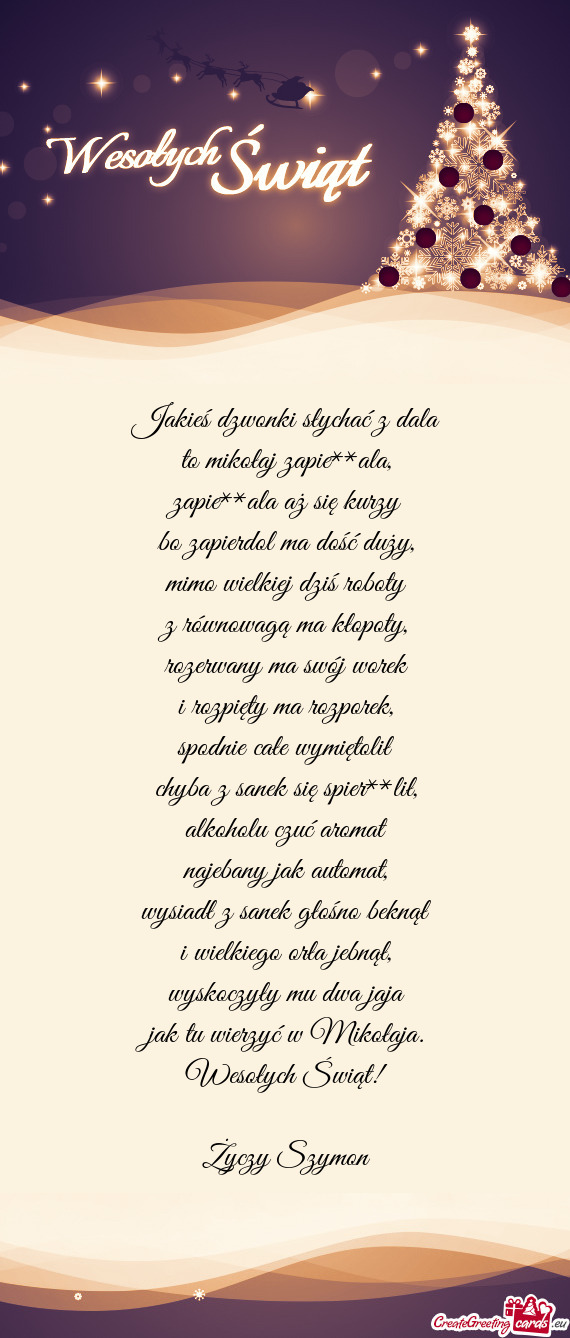 Wesołych Świąt
Jakieś dzwonki słychać z dala
to mikołaj zapie**ala,
zapie**ala aż się kurzy
bo zapierdol ma dość duży,
mimo wielkiej dziś roboty
z równowagą ma kłopoty,
rozerwany ma swój worek
i rozpięty ma rozporek,
spodnie całe wymiętolił
chyba z sanek się spier**lił,
alkoholu czuć aromat
najebany jak automat,
wysiadł z sanek głośno beknął
i wielkiego orła jebnął,
wyskoczyły mu dwa jaja
jak tu wierzyć w Mikołaja.
Wesołych Świąt!
Życzy Szymon
CreateGreetingcards.eu